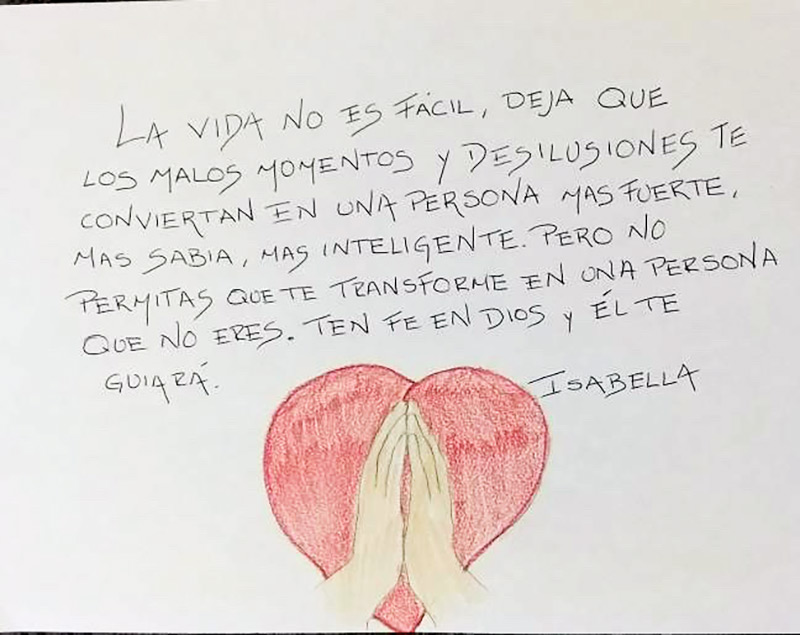 LA VIDA NO ES FÁCIL, DEJA QUE
LOS MALOS MOMENTOS Y DESILUSIONES TE
CONVIERTAN EN UNA PERSONA MAS FUERTE,
MAS SABIA, MAS INTELIGENTE. PERO NO
PERMITAS QUE TE TRANSFORME EN UNA PERSONA
QUE NO ERES. TEN FE EN DIOS Y ÉL TE
GUIARÁ.
ISABELLA